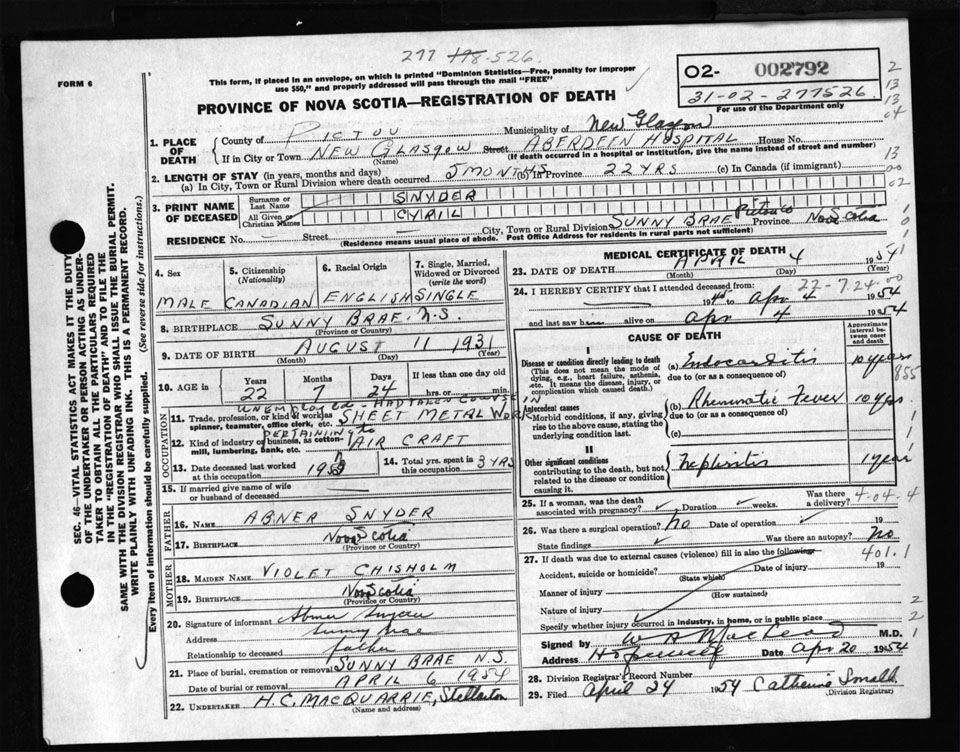 277 198-526.
FORM 6
This form, if placed in an envelope, on which is printed "Dominion Statistics—Free, penalty for improper
use $50," and properly addressed will pass through the mail "FREE"
02- 002792
31-02-277526
For use of the Department only
PROVINCE OF NOVA SCOTIA—REGISTRATION OF DEATH
1. PLACE OF DEATH
County of PICTOU Municipality of New Glasgow
If in City or Town NEW GLASGOW Street ABERDEEN HOSPITAL House No.
(Name) (If death occurred in a hospital or institution, give the name instead of street and number)
2. LENGTH OF STAY (in years, months and days)
(a) In City, Town or Rural Division where death occurred 5 MONTHS (b) In Province 22 YRS (c) In Canada (if immigrant)
3. PRINT NAME OF DECEASED
Surname or Last Name SNYDER
All Given or Christian Names CYRIL
RESIDENCE No. Street City, Town or Rural Division SUNNY BRAE Pictou Co Province Nova Scotia
(Residence means usual place of abode. Post Office Address for residents in rural parts not sufficient)
4. Sex MALE
5. Citizenship (Nationality) CANADIAN
6. Racial Origin ENGLISH
7. Single, Married, Widowed or Divorced (write the word) SINGLE
8. BIRTHPLACE SUNNY BRAE, N.S.
(Province or Country)
9. DATE OF BIRTH AUGUST 11 1931
(Month) (Day) (Year)
10. AGE in Years Months Days If less than one day old
22 7 24 hrs. or min.
OCCUPATION
UNEMPLOYED - HAD TAKEN COURSE IN
11. Trade, profession, or kind of work as spinner, teamster, office clerk, etc. SHEET METAL WORK
PERTAINING to
12. Kind of industry or business, as cotton-mill, lumbering, bank, etc. AIR CRAFT
13. Date deceased last worked at this occupation 195
14. Total yrs. spent in this occupation 3 YRS
15. If married give name of wife or husband of deceased
FATHER
16. NAME ABNER SNYDER
17. BIRTHPLACE Nova Scotia
(Province or Country)
MOTHER
18. MAIDEN NAME VIOLET CHISHOLM
19. BIRTHPLACE Nova Scotia
(Province or Country)
20. Signature of informant Abner Snyder
Address Sunny Brae
Relationship to deceased father
21. Place of burial, cremation or removal SUNNY BRAE N.S.
Date of burial or removal APRIL 6 1954
22. UNDERTAKER H.C. MACQUARRIE, Stellarton
(Name and address)
MEDICAL CERTIFICATE OF DEATH
23. DATE OF DEATH APRIL 4 1954
(Month) (Day) (Year)
24. I HEREBY CERTIFY that I attended deceased from: 22-7.24-00
19 to Apr 4 1954
and last saw him alive on Apr 4 1954
CAUSE OF DEATH
Approximate interval between onset and death
I
Disease or condition directly leading to death (a) Endocarditis 10 years
(This does not mean the mode of dying, e.g., heart failure, asthenia, etc. It means the disease, injury, or complication which caused death.)
due to (or as a consequence of)
855
Antecedent causes (b) Rheumatic Fever 10 yrs.
Morbid conditions, if any, giving rise to the above cause, stating the underlying condition last.
due to (or as a consequence of)
(c)
II
Other significant conditions Nephritis 1 year
contributing to the death, but not related to the disease or condition causing it.
25. If a woman, was the death associated with pregnancy? Duration weeks. Was there a delivery? 4-04-4
26. Was there a surgical operation? No Date of operation 19
State findings Was there an autopsy? No
27. If death was due to external causes (violence) fill in also the following: 401.1
Accident, suicide or homicide? Date of injury 19
(State which)
Manner of injury
(How sustained)
Nature of injury
Specify whether injury occurred in industry, in home, or in public place
Signed by W A MacLeod M.D.
Address Date Apr 20 1954
28. Division Registrar's Record Number
29. Filed April 24 1954 Catherine Small
(Division Registrar)
SEC. 46—VITAL STATISTICS ACT MAKES IT THE DUTY
OF THE UNDERTAKER OR PERSON ACTING AS UNDER-
TAKER TO OBTAIN ALL THE PARTICULARS REQUIRED
IN THE "REGISTRATION OF DEATH" AND TO FILE THE
SAME WITH THE DIVISION REGISTRAR WHO SHALL ISSUE THE BURIAL PERMIT.
WRITE PLAINLY WITH UNFADING INK. THIS IS A PERMANENT RECORD.
Every item of information should be carefully supplied. (See reverse side for instructions.)
2
13
13
04
13
00
02
1
0
1
1
1
1
2
2
1